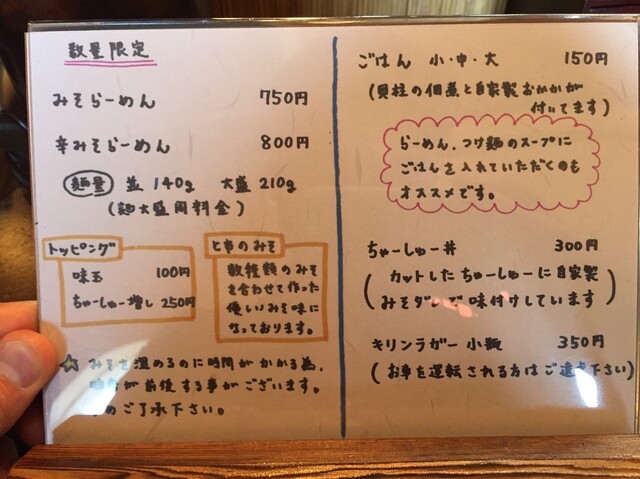 数量限定
みそらーめん 750円
辛みそらーめん 800円
麺量 並 140g 大盛 210g
(麺大盛同料金)
トッピング
味玉 100円
ちゃーしゅー増し 250円
と串のみそ
数種類のみそ
を合わせて作った
優しいみそ味に
なっております。
☆ みそを温めるのに時間がかかる為、
が前後する事がございます。
のご了承下さい。
ごはん 小・中・大 150円
(貝柱の佃煮と自家製おかかが
付いてます)
らーめん、つけ麺のスープに
ごはんを入れていただくのも
オススメです。
ちゃーしゅー丼 300円
(カットしたちゃーしゅーに自家製
みそダレで味付けしています)
キリンラガー 小瓶 350円
(お車を運転される方はご遠慮下さい)